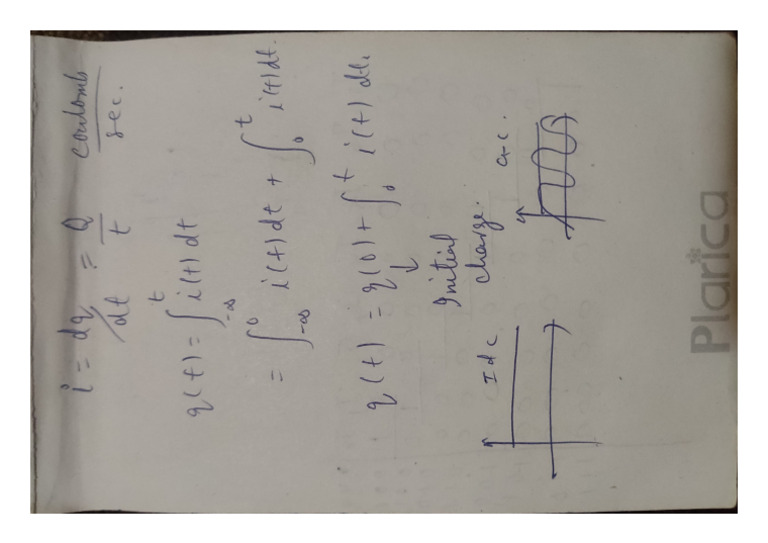 i = dq/dt = Q/t coulomb/sec.
q(t) = ∫_{-∞}^{t} i(t) dt
= ∫_{-∞}^{0} i(t) dt + ∫_{0}^{t} i(t) dt.
q(t) = q(0) + ∫_{0}^{t} i(t) dt.
↓
Initial
charge.
I dc
a-c.
Plarica